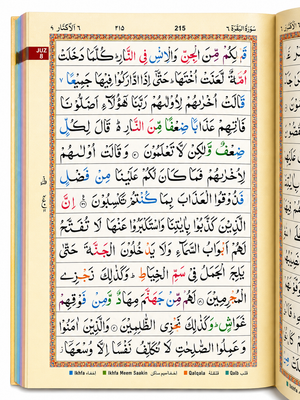 215
٢١٥
JUZ
8
قَبْلِكُمْ مِّنَ الْجِنِّ وَالْاِنْسِ فِی النَّارِ كُلَّمَا دَخَلَتْ
اُمَّةٌ لَّعَنَتْ اُخْتَهَا حَتّٰى اِذَا ادَّارَكُوْا فِيْهَا جَمِيْعًا
قَالَتْ اُخْرٰىهُمْ لِاُوْلٰىهُمْ رَبَّنَا هٰٓؤُلَآءِ اَضَلُّوْنَا
فَاٰتِهِمْ عَذَابًا ضِعْفًا مِّنَ النَّارِ قَالَ لِكُلٍّ
ضِعْفٌ وَّلٰكِنْ لَّا تَعْلَمُوْنَ وَقَالَتْ اُوْلٰىهُمْ
لِاُخْرٰىهُمْ فَمَا كَانَ لَكُمْ عَلَيْنَا مِنْ فَضْلٍ
فَذُوْقُوا الْعَذَابَ بِمَا كُنْتُمْ تَكْسِبُوْنَ اِنَّ
الَّذِيْنَ كَذَّبُوْا بِاٰيٰتِنَا وَاسْتَكْبَرُوْا عَنْهَا لَا تُفَتَّحُ
لَهُمْ اَبْوَابُ السَّمَآءِ وَلَا يَدْخُلُوْنَ الْجَنَّةَ حَتّٰى
يَلِجَ الْجَمَلُ فِیْ سَمِّ الْخِيَاطِ وَكَذٰلِكَ نَجْزِی
الْمُجْرِمِيْنَ لَهُمْ مِّنْ جَهَنَّمَ مِهَادٌ وَّمِنْ فَوْقِهِمْ
غَوَاشٍ وَكَذٰلِكَ نَجْزِی الظّٰلِمِيْنَ وَالَّذِيْنَ اٰمَنُوْا
وَعَمِلُوا الصّٰلِحٰتِ لَا نُكَلِّفُ نَفْسًا اِلَّا وُسْعَهَا
Ikhfa اخفاء Ikhfa Meem Saakin Qalqala قلقلة Qalb قلب